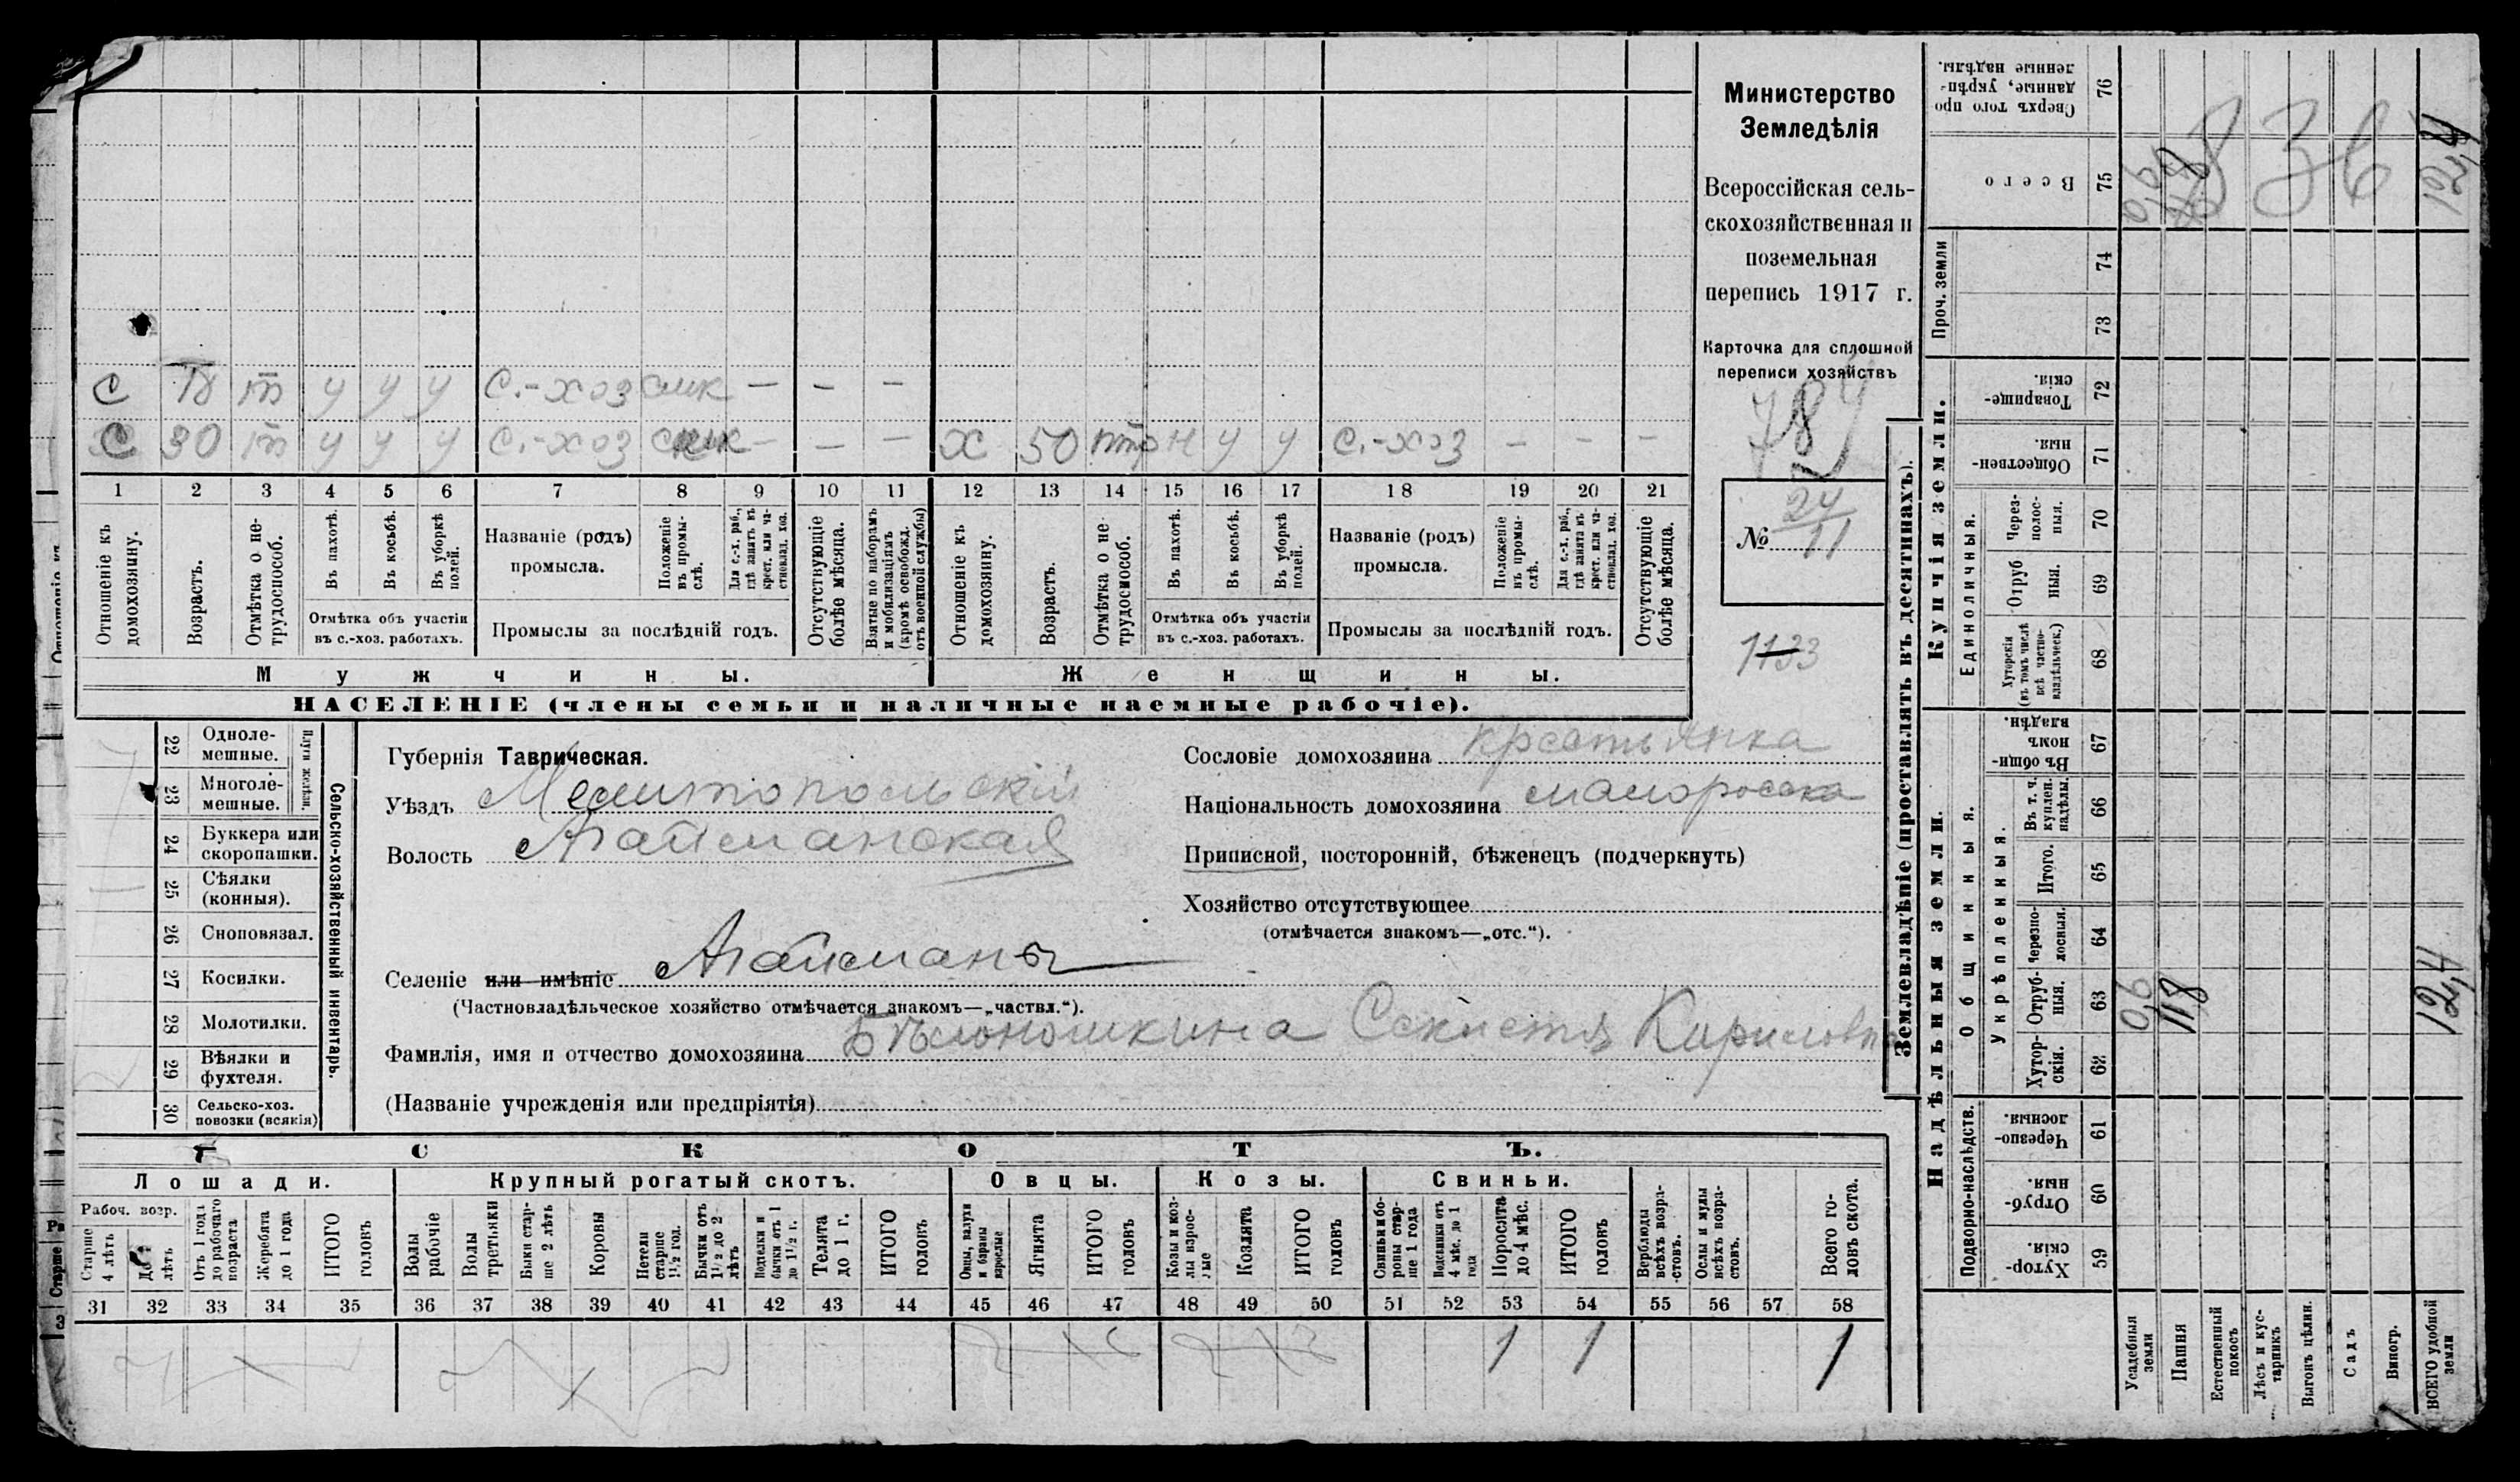 С 18 т у у у С.-хоз — — —
С 30 т у у у С.-хоз — — — х 50 н у у С.-хоз — — — —
1 2 3 4 5 6 7 8 9 10 11 12 13 14 15 16 17 18 19 20 21
Отношеніе къ домохозяину.
Возрастъ.
Отмѣтка о не-трудоспособ.
Въ пахотѣ.
Въ косьбѣ.
Въ уборкѣ полей.
Отмѣтка объ участіи
въ с.-хоз. работахъ.
Названіе (родъ)
промысла.
Положеніе въ промы-слѣ.
Для с.-х. раб., гдѣ занятъ въ крест. или ча-стновлад. хоз.
Промыслы за послѣдній годъ.
Отсутствующіе болѣе мѣсяца.
Взятые по наборамъ и мобилизаціямъ (кромѣ освобожд. отъ военной службы)
Отношеніе къ домохозяину.
Возрастъ.
Отмѣтка о не-трудоспособ.
Въ пахотѣ.
Въ косьбѣ.
Въ уборкѣ полей.
Отмѣтка объ участіи
въ с.-хоз. работахъ.
Названіе (родъ)
промысла.
Положеніе въ промы-слѣ.
Для с.-х. раб., гдѣ занята въ крест. или ча-стновлад. хоз.
Промыслы за послѣдній годъ.
Отсутствующіе болѣе мѣсяца.
Мужчины.
Женщины.
НАСЕЛЕНІЕ (члены семьи и наличные наемные рабочіе).
Министерство
Земледѣлія
Всероссійская сель-
скохозяйственная и
поземельная
перепись 1917 г.
Карточка для сплошной
переписи хозяйствъ
784
№ 24
11
1133
22 Однолемешные.
23 Многолемешные.
Плуги желѣзн.
24 Буккера или скоропашки.
25 Сѣялки (конныя).
26 Сноповязал.
27 Косилки.
28 Молотилки.
29 Вѣялки и фухтеля.
30 Сельско-хоз. повозки (всякія)
Сельско-хозяйственный инвентарь.
Губернія Таврическая.
Уѣздъ Мелитопольскій
Волость Агайманская
Селеніе или имѣніе Агайманы
(Частновладѣльческое хозяйство отмѣчается знакомъ—„частвл.“).
Фамилія, имя и отчество домохозяина Бѣлоношкина Кириловна
(Названіе учрежденія или предпріятія)
Сословіе домохозяина крестьянка
Національность домохозяина малоросска
Приписной, посторонній, бѣженецъ (подчеркнуть)
Хозяйство отсутствующее
(отмѣчается знакомъ—„отс.“).
СКОТЪ.
Лошади. Крупный рогатый скотъ. Овцы. Козы. Свиньи.
Рабоч. возр.
Старше 4 лѣтъ
До 4 лѣтъ
Отъ 1 года до рабочаго возраста
Жеребята до 1 года
ИТОГО головъ
Волы рабочіе
Волы третьяки
Быки старше 2 лѣтъ
Коровы
Нетели старше 1½ год.
Бычки отъ 1½ до 2 лѣтъ
Подтелки и бычки отъ 1 до 1½ г.
Телята до 1 г.
ИТОГО головъ
Овцы, валухи и бараны взрослые
Ягнята
ИТОГО головъ
Козы и козлы взрослые
Козлята
ИТОГО головъ
Свиньи и боровы старше 1 года
Подсвинки отъ 4 мѣс. до 1 года
Поросята до 4 мѣс.
ИТОГО головъ
Верблюды всѣхъ возра-стовъ.
Ослы и мулы всѣхъ возра-стовъ.
Всего го-ловъ скота.
31 32 33 34 35 36 37 38 39 40 41 42 43 44 45 46 47 48 49 50 51 52 53 54 55 56 57 58
1 1 1
Землевладѣніе (проставлять въ десятинахъ).
Надѣльныя земли. Купчія земли.
Подворно-наслѣдств.
Общинныя.
Укрѣпленныя.
Единоличныя.
Проч. земли
Хуторскія 59
Отрубныя. 60
Черезполосныя. 61
Хуторскія. 62
Отрубныя. 63
Черезполосныя. 64
Итого. 65
Въ т. ч. куплен. надѣлы. 66
Въ общинномъ владѣн. 67
Хуторскія (въ томъ числѣ всѣ частно-владѣльческ.) 68
Отрубныя. 69
Черезполосныя. 70
Общественныя. 71
Товарищескія. 72
73
74
Всего 75
Сверхъ того проданные, укрѣпленные надѣлы. 76
Усадебныя земли
Пашня
Естественный покосъ
Лѣсъ и кустарникъ
Выгонъ цѣлин.
Садъ
Виногр.
ВСЕГО удобной земли